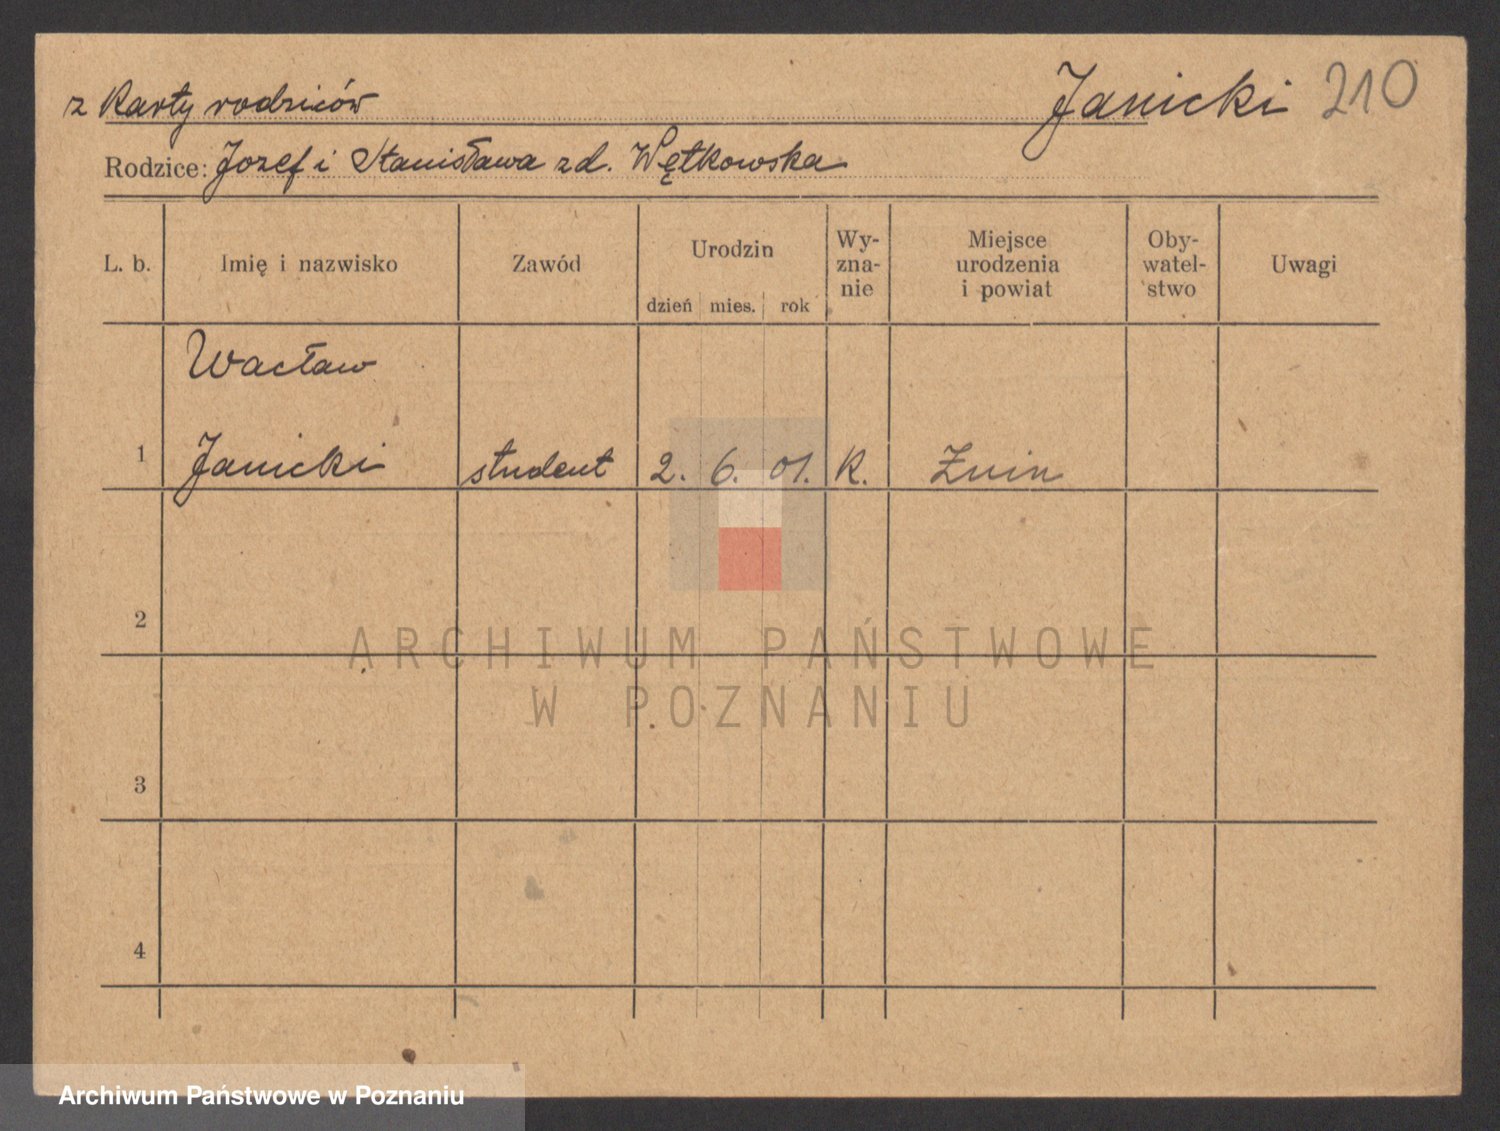 z Karty rodziców
Janicki 210
Rodzice: Jozef i Stanisława z d. Wętkowska
L. b. Imię i nazwisko Zawód Urodzin dzień mies. rok Wy-zna-nie Miejsce urodzenia i powiat Oby-watel-stwo Uwagi
Wacław
1 Janicki student 2. 6. 01. K. Znin
2
3
4
ARCHIWUM PAŃSTWOWE
W POZNANIU
Archiwum Państwowe w Poznaniu